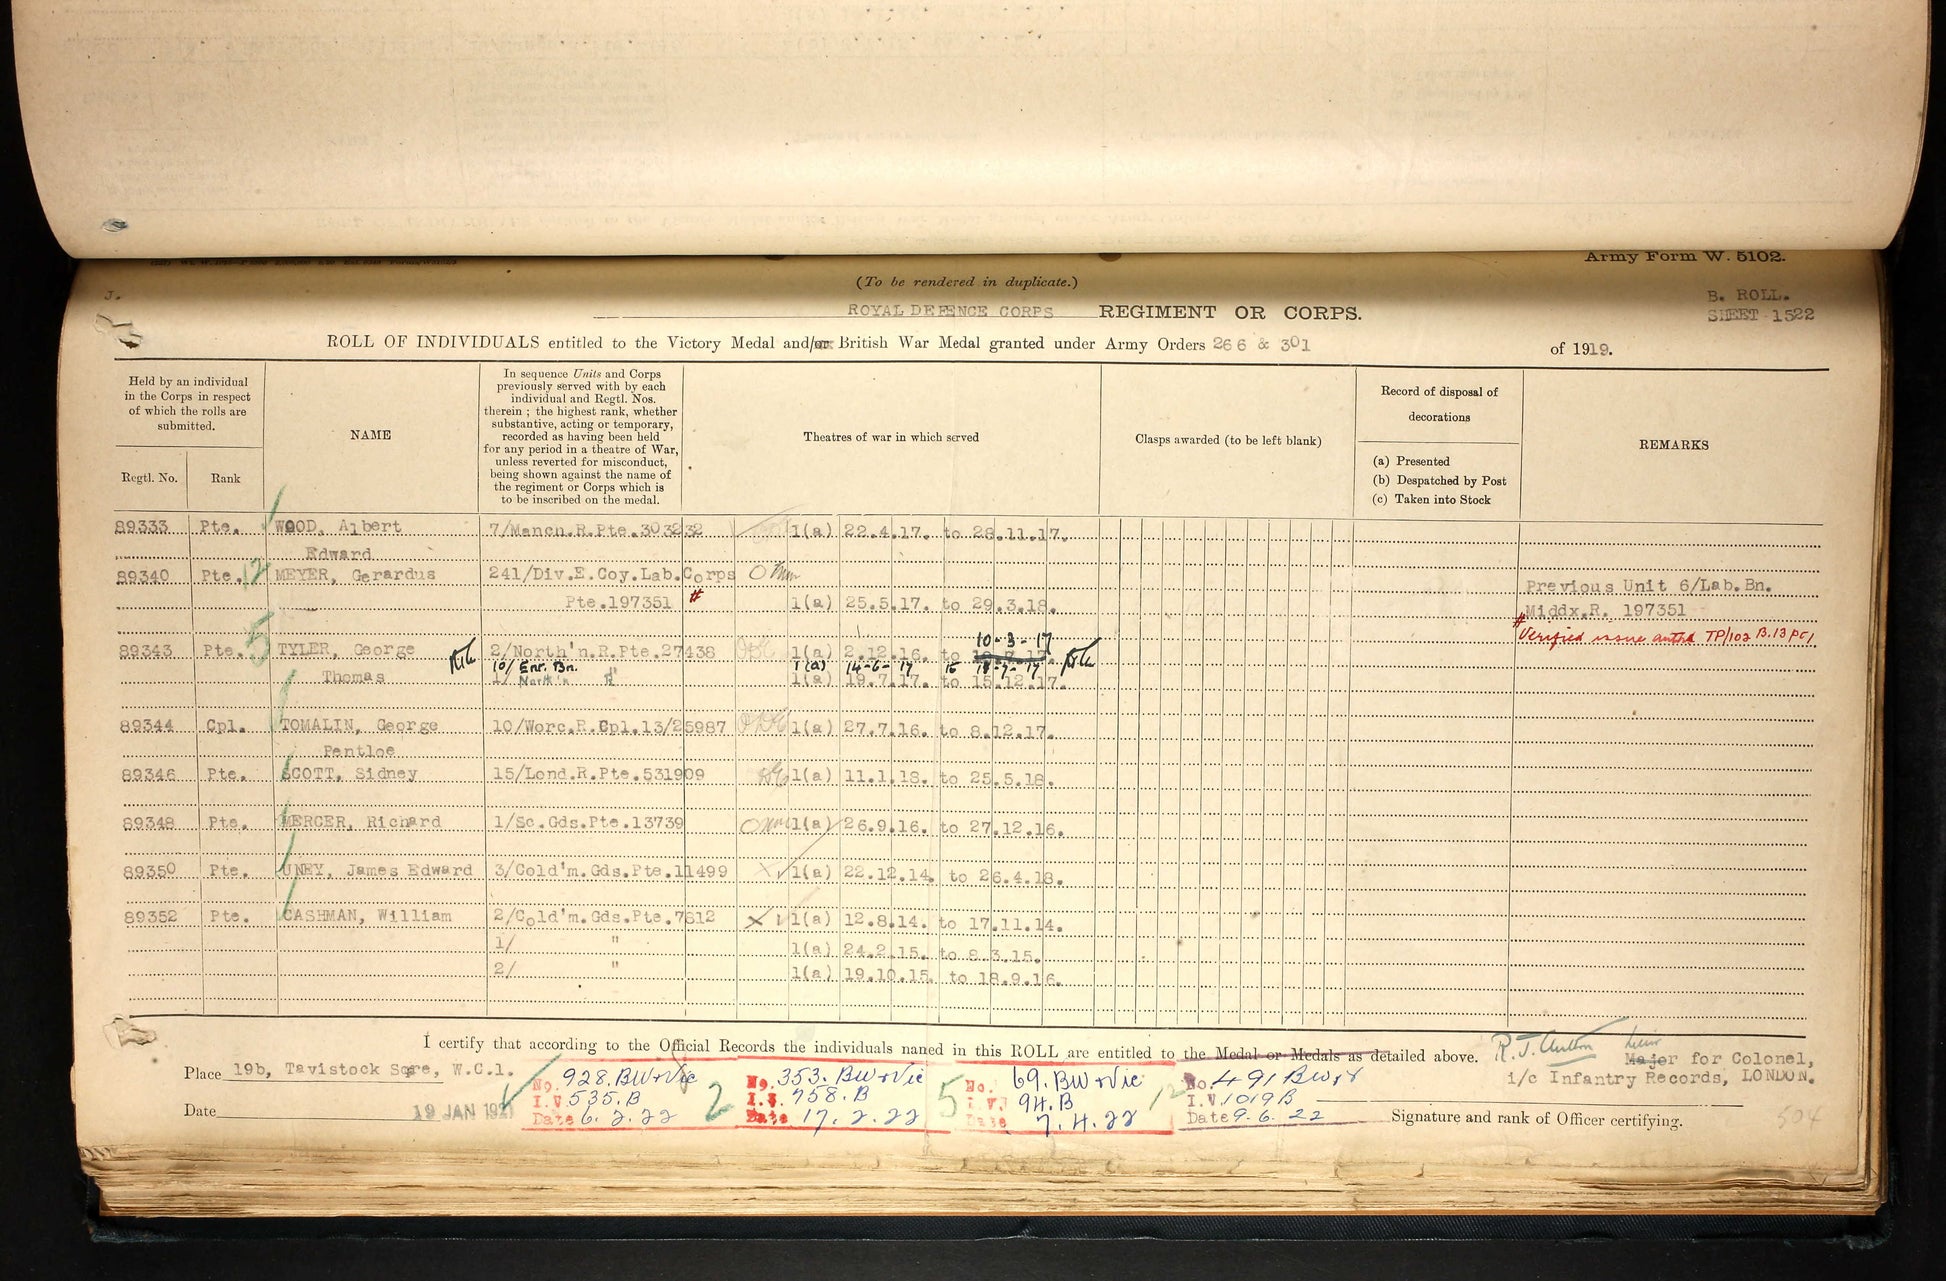 Army Form W. 5102.
(To be rendered in duplicate.)
J.
B. ROLL.
ROYAL DEFENCE CORPS REGIMENT OR CORPS.
SHEET 1522
ROLL OF INDIVIDUALS entitled to the Victory Medal and/or British War Medal granted under Army Orders 266 & 301 of 1919.
Held by an individual
in the Corps in respect
of which the rolls are
submitted.
Regtl. No.
Rank
NAME
In sequence Units and Corps
previously served with by each
individual and Regtl. Nos.
therein ; the highest rank, whether
substantive, acting or temporary,
recorded as having been held
for any period in a theatre of War,
unless reverted for misconduct,
being shown against the name of
the regiment or Corps which is
to be inscribed on the medal.
Theatres of war in which served
Clasps awarded (to be left blank)
Record of disposal of
decorations
(a) Presented
(b) Despatched by Post
(c) Taken into Stock
REMARKS
89333 Pte. WOOD, Albert 7/Manch.R.Pte.303232 1(a) 22.4.17. to 28.11.17.
Edward
89340 Pte. 12 MEYER, Gerardus 241/Div.E.Coy.Lab.Corps
Previous Unit 6/Lab.Bn.
Pte.197351 # 1(a) 25.5.17. to 29.3.18.
Middx.R. 197351
# Verified issue TP/102 B.13
5
10-3-17
89343 Pte. TYLER, George 2/North'n.R.Pte.27438 1(a) 2.12.16. to
10/ Enr. Bn. 1(a) 14-6-17 to 18-7-17
Thomas 1/ North'n " 1(a) 19.7.17. to 15.12.17.
89344 Cpl. TOMALIN, George 10/Worc.R.Cpl.13/25987 1(a) 27.7.16. to 8.12.17.
Pentloe
89346 Pte. SCOTT, Sidney 15/Lond.R.Pte.531909 1(a) 11.1.18. to 25.5.18.
89348 Pte. MERCER, Richard 1/Sc.Gds.Pte.13739 1(a) 26.9.16. to 27.12.16.
89350 Pte. UNEY, James Edward 3/Cold'm.Gds.Pte.11499 X 1(a) 22.12.14. to 26.4.18.
89352 Pte. CASHMAN, William 2/Cold'm.Gds.Pte.7812 X 1(a) 12.8.14. to 17.11.14.
1/ " 1(a) 24.2.15. to 8.3.15.
2/ " 1(a) 19.10.15. to 18.9.16.
I certify that according to the Official Records the individuals named in this ROLL are entitled to the Medal or Medals as detailed above.
Place 19b, Tavistock Sqre, W.C.1.
Date 19 JAN 1921
No. 928.BW&Vic
I.V. 535.B
Date 6.2.22
2
No. 353. BW&Vic
I.V. 758.B
Date 17.2.22
5
No. 69.BW&Vic
I.V. 94.B
Date 7.4.22
12
No. 491 BW&V
I.V. 1019B
Date 9.6.22
Major for Colonel,
i/c Infantry Records, LONDON.
Signature and rank of Officer certifying.
504